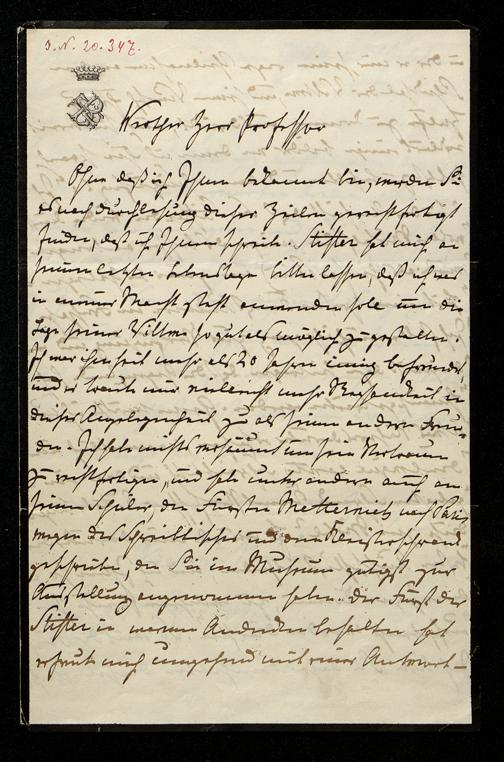 J. N. 20.347.
Werther Herr Professor
Ohne daß ich Ihnen bekannt bin, werden Sie
es nach Durchlesung dieser Zeilen gerechtfertigt
finden, daß ich Ihnen schreibe. Stifter hat mich an
seinem letzten Lebenstage bitten lassen, daß ich was
in meiner Macht steht anwenden solle um die
Lage seiner Witwe so gut als möglich zu gestalten.
Ich war ihm seit mehr als 20 Jahren innig befreundet
und er traute mir vielleicht mehr Regsamkeit in
dieser Angelegenheit zu als seinen andern Freun-
den. Ich habe nichts versäumt um sein Vertrauen
zu rechtfertigen, und habe unter andern auch an
seinen Schüler, den Fürsten Metternich nach Paris
wegen des Schreibtisches und dem Kleiderschrank
geschrieben, den Sie im Museum gütigst zur
Ausstellung angenommen haben. Der Fürst der
Stifter in warmen Andenken behalten hat
erfreut mich umgehend mit einer Antwort –